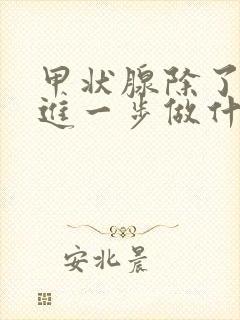 甲状腺除了
进一步做什
安北晨